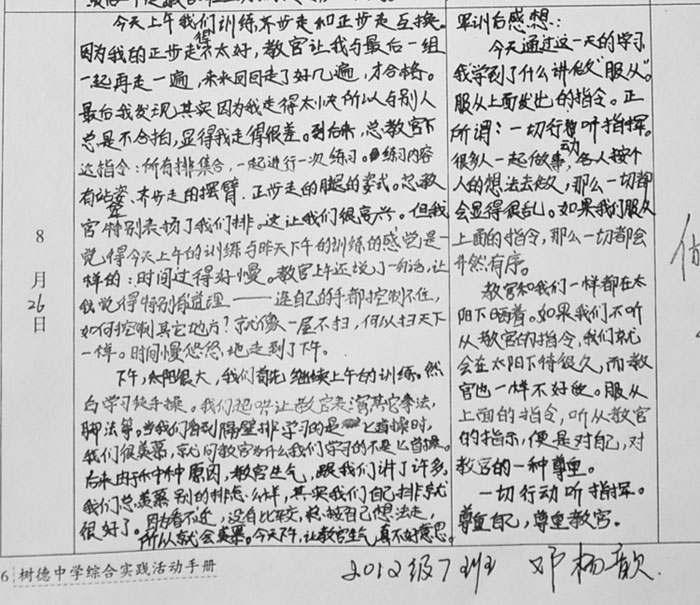 今天上午我们训练齐步走和正步走互换。
因为我的正步走得不太好，教官让我与最后一组
一起再走一遍，来来回回走了好几遍，才合格。
最后我发现其实因为我走得太快所以与别人
总是不合拍，显得我走得很差。到后来，总教官下
达指令：所有排集合，一起进行一次练习。练习内容
有站姿、齐步走的摆臂、正步走的腿的姿式。总教
官特别表扬了我们排。这让我们很高兴。但我
觉得今天上午的训练与昨天下午的训练的感觉是一
样的：时间过得好慢。教官上午还说了一句话，让
我觉得特别有道理——连自己的手都控制不住，
如何控制其它地方？就像一屋不扫，何以扫天下
一样。时间慢悠悠地走到了下午。
下午，太阳很大，我们首先继续上午的训练。然
后学习徒手操。我们起哄让教官表演其它拳法，
脚法等。当我们看到隔壁排学习的是匕首操时，
我们很羡慕，就问教官为什么我们学习的不是匕首操。
后来由于种种原因，教官生气，跟我们讲了许多
我们总羡慕别的排怎么样，其实我们自己排就
很好了。因为看不远，没有比较，总按自己想法走，
所以就会羡慕。今天下午，让教官生气真不好意思。
8
月
26
日
军训后感想：
今天通过这一天的学习
我学到了什么讲做“服从”。
服从上面发出的指令。正
所谓：一切行动听指挥。
很多人一起做事，各人按个
人的想法去做，那么一切都
会显得很乱。如果我们服从
上面的指令，那么一切都会
井然有序。
教官和我们一样都在太
阳下晒着。如果我们不听
从教官的指令，我们就
会在太阳下待很久，而教
官也一样不好做。服从
上面的指令，听从教官
的指示，便是对自己，对
教官的一种尊重。
一切行动听指挥。
尊重自己，尊重教官。
6 树德中学综合实践活动手册
2012级7班 邓杨歆